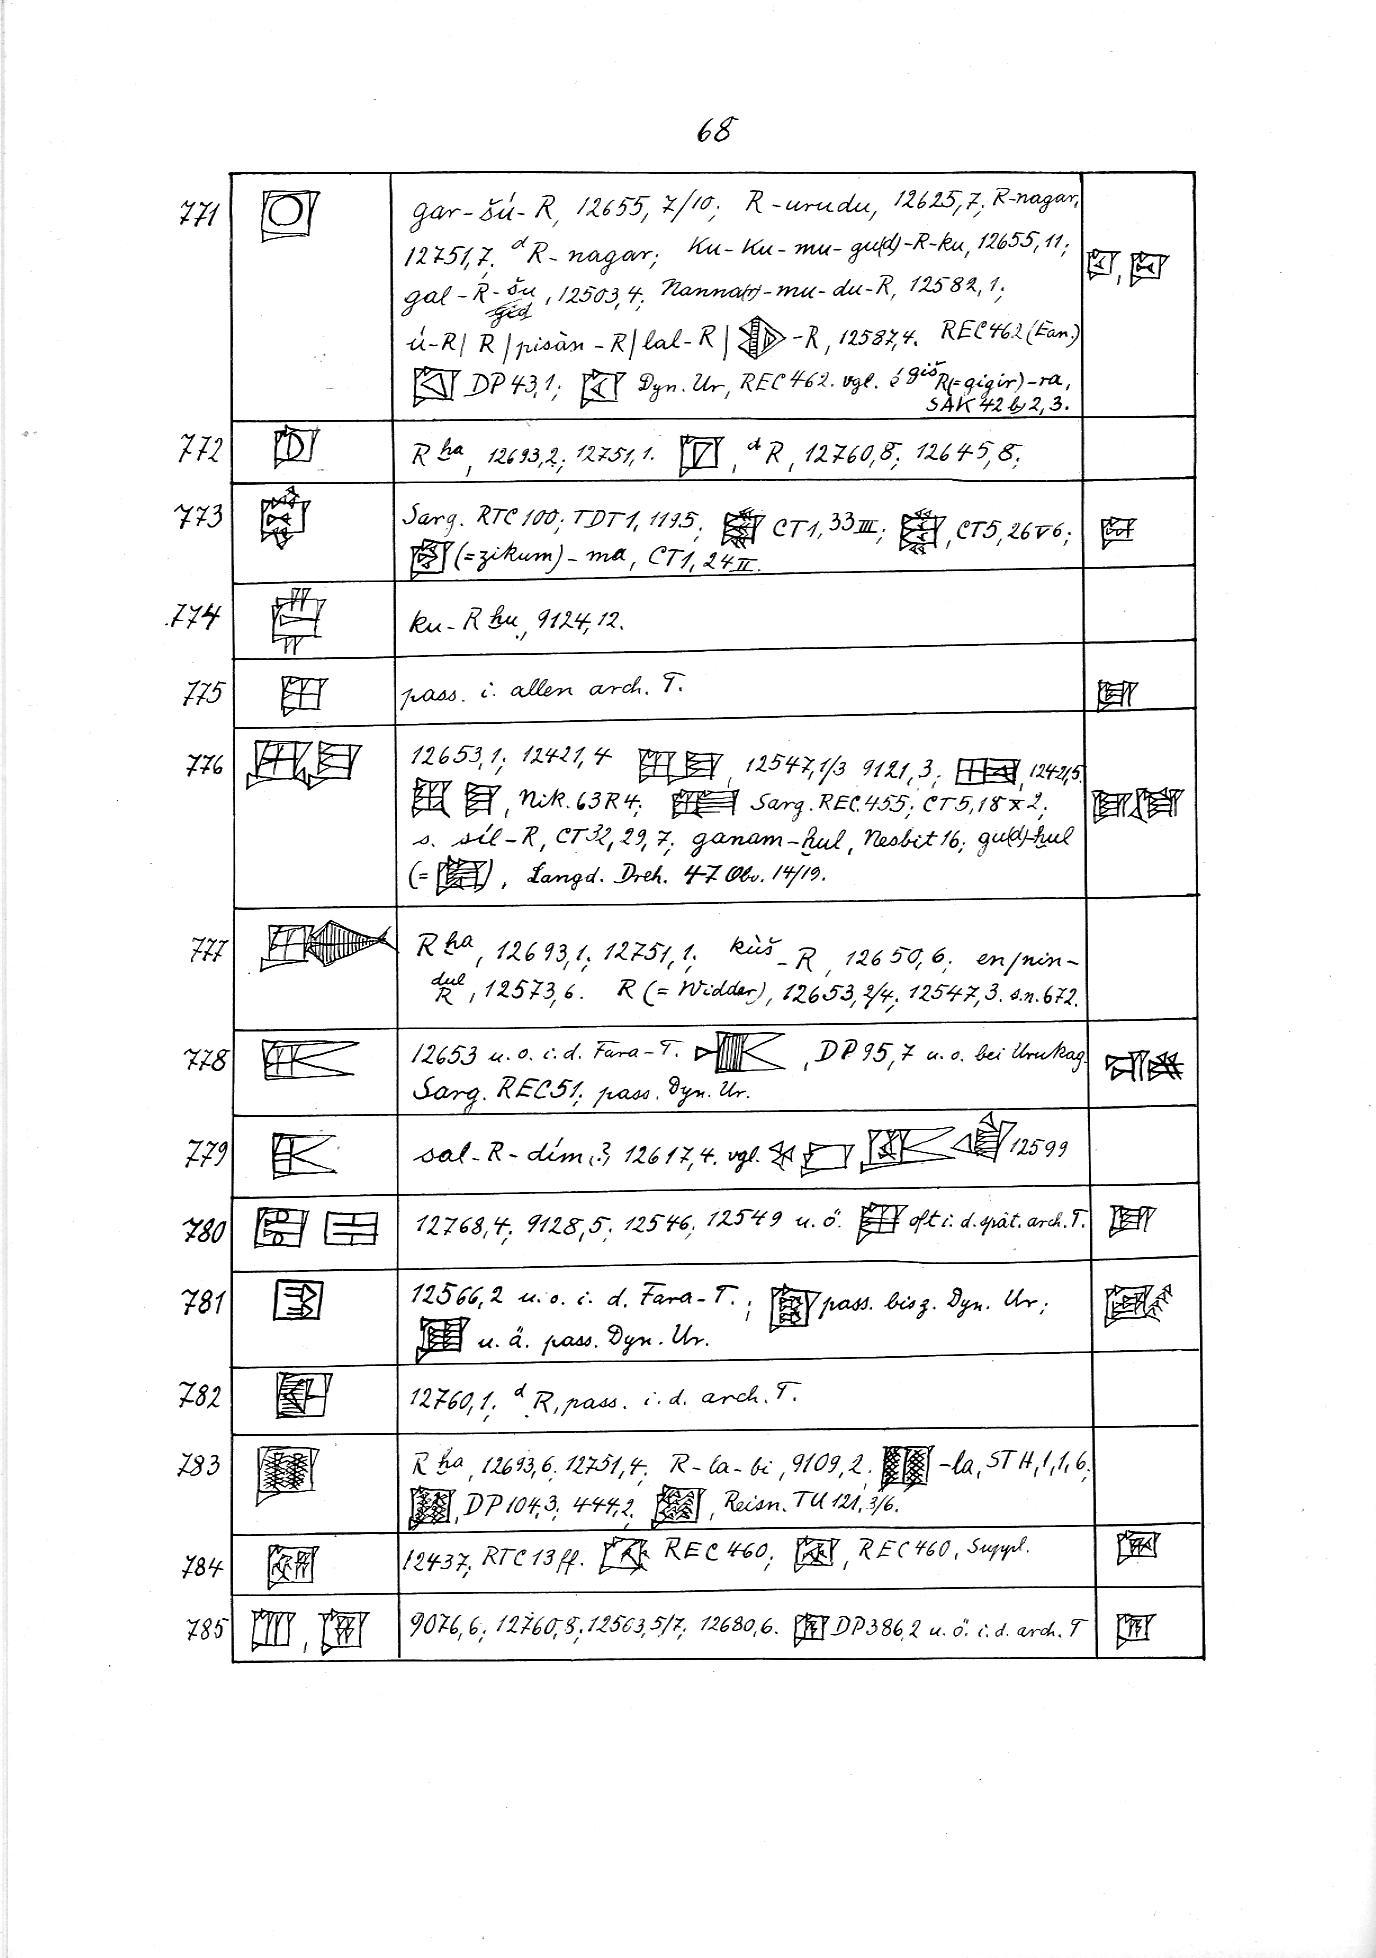 68
771 gar-šú-R, 12655, 7/10; R-urudu, 12625,7; R-nagar,
12751,7. ᵈR-nagar; Ku-Ku-mu-gu(d)-R-ku, 12655,11;
gal-R-šu, 12503,4; Nanna(r)-mu-du-R, 12582,1;
gid
ú-R/ R/pisàn-R/lal-R/ -R, 12587,4. REC 462 (Ean.)
DP 43,1; Dyn. Ur, REC 462. vgl. é ᵍⁱˢR(=gigir)-ra,
SAK 42 b, 2, 3.
772 R ḫa, 12693,2; 12751,1. , ᵈR, 12760,8; 12645,8;
773 Sarg. RTC 100; TDT 1, 1195; CT 1, 33 III; , CT 5, 26 V 6;
(=zikum)-ma, CT 1, 24 II.
774 ku-R ḫu, 9124,12.
775 pass. i. allen arch. T.
776 12653,1; 12421,4 , 12547,1/3 9121,3; , 12421,5.
, Nik. 63 R 4; Sarg. REC 455; CT 5, 18 X 2;
s. síl-R, CT 32, 29, 7; ganam-ḫul, Nesbit 16; gu(d)-ḫul
(= ), Langd. Dreh. 47 Obv. 14/19.
777 R ḫa, 12693,1; 12751,1; kùš-R, 12650,6; en/nin-
dul
R, 12573,6. R (= Widder), 12653,2/4; 12547,3. s.n. 672.
778 12653 u. o. i. d. Fara-T. , DP 95,7 u. o. bei Urukag.
Sarg. REC 51; pass. Dyn. Ur.
779 sal-R-dím(?), 12617,4. vgl. 12599
780 12768,4; 9128,5; 12546; 12549 u. ö. oft i. d. spät. arch. T.
781 12566,2 u. o. i. d. Fara-T.; pass. bis z. Dyn. Ur;
u. ä. pass. Dyn. Ur.
782 12760,1; ᵈR, pass. i. d. arch. T.
783 R ḫa, 12693,6; 12751,4; R-la-bi, 9109,2; -la, STH, 1, 1, 6;
, DP 104,3; 444,2; , Reisn. TU 121, 3/6.
784 12437; RTC 13 ff. REC 460; , REC 460, Suppl.
785 , 9076,6; 12760,8; 12563,5/7; 12680,6. DP 386,2 u. ö. i. d. arch. T